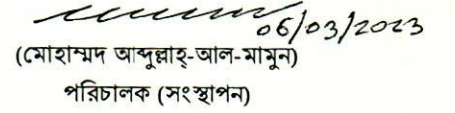 06/03/2023
(মোহাম্মদ আব্দুল্লাহ্-আল-মামুন)
পরিচালক (সংস্থাপন)